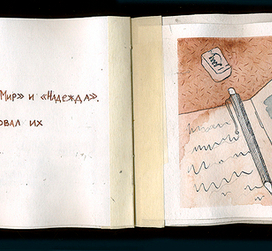 Мир» и «Надежда».
овал их